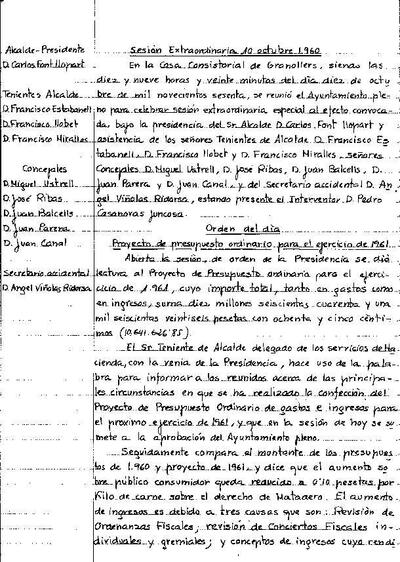 Alcalde-Presidente
D. Carlos Font Llopart
Tenientes Alcalde
D. Francisco Estabanell
D. Francisco Llobet
D. Francisco Miralles
Concejales
D. Miguel Ustrell
D. José Ribas
D. Juan Balcells
D. Juan Parera
D. Juan Canal
Secretario accidental
D. Angel Viñolas Ridorsa
Sesión Extraordinaria 10 octubre 1.960
En la Casa Consistorial de Granollers, siendo las
diez y nueve horas y veinte minutos del dia diez de octu
bre de mil novecientos sesenta, se reunió el Ayuntamiento ple-
no para celebrar sesión extraordinaria especial al efecto convoca-
da, bajo la presidencia del Sr. Alcalde D. Carlos Font Llopart y
asistencia de los señores Tenientes de Alcalde D. Francisco Es-
tabanell, D. Francisco Llobet y D. Francisco Miralles, señores
Concejales D. Miguel Ustrell, D. José Ribas, D. Juan Balcells, D.
Juan Parera y D. Juan Canal, y del Secretario accidental D. An
gel Viñolas Ridorsa, estando presente el Interventor D. Pedro
Casanovas Juncosa.
Orden del dia
Proyecto de presupuesto ordinario para el ejercicio de 1961
Abierta la sesión, de orden de la Presidencia se dió
lectura al Proyecto de Presupuesto ordinario para el ejerci-
cicio de 1.961, cuyo importe total, tanto en gastos como
en ingresos, suma diez millones seiscientos cuarenta y una
mil seiscientas veintiseis pesetas con ochenta y cinco cénti-
mos (10.641.626'85).
El Sr. Teniente de Alcalde delegado de los servicios de Ha
cienda, con la venia de la Presidencia, hace uso de la pala-
bra para informar a los reunidos acerca de las principa-
les circunstancias en que se ha realizado la confección del
Proyecto de Presupuesto Ordinario de gastos e ingresos para
el proximo ejercicio de 1961, y que en la sesión de hoy se so
mete a la aprobación del Ayuntamiento pleno.
Seguidamente compara el montante de los presupues
tos de 1.960 y proyecto de 1961, y dice que el aumento so
bre público consumidor queda reducido a 0'10 pesetas por
Kilo de carne sobre el derecho de Matadero. El aumento
de ingresos es debido a tres causas que son: Revisión de
Ordenanzas Fiscales; revisión de Conciertos Fiscales in-
dividuales y gremiales; y conceptos de ingresos cuyo rendi